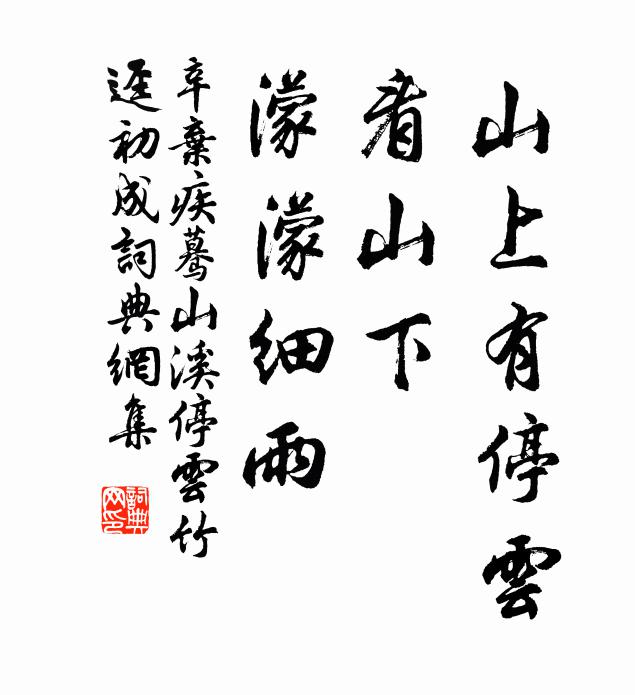 山上有停雲
看山下
濛濛細雨
辛棄疾驀山溪停雲竹
逕初成詞典網集
詞典
网印